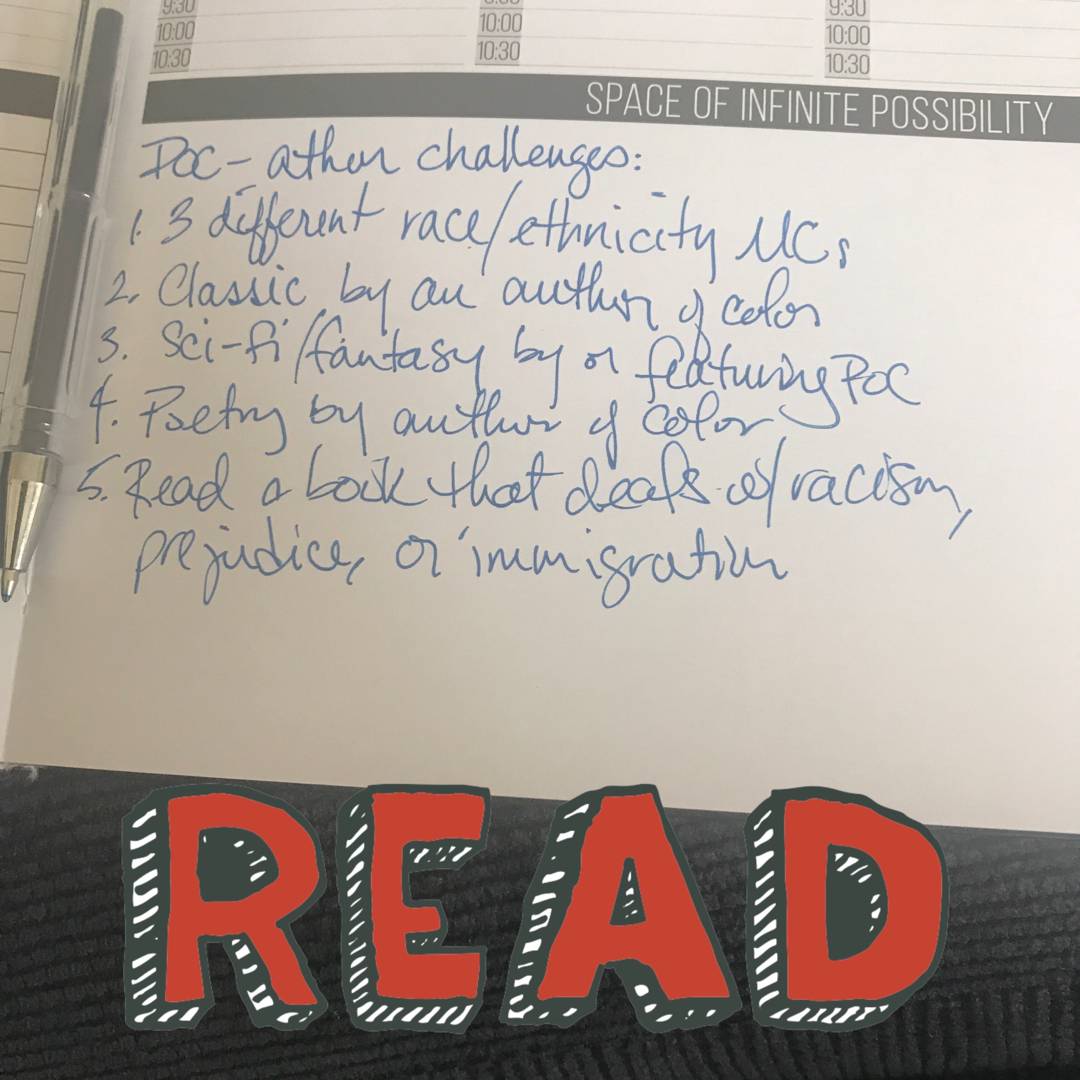 9:30
10:00
10:30
10:00
10:30
9:30
10:00
10:30
SPACE OF INFINITE POSSIBILITY
POC - athor challenges:
1. 3 different race/ethnicity MCs
2. Classic by an author of color
3. Sci-fi/fantasy by or featuring POC
4. Poetry by author of color
5. Read a book that deals w/ racism,
prejudice, or immigration
READ